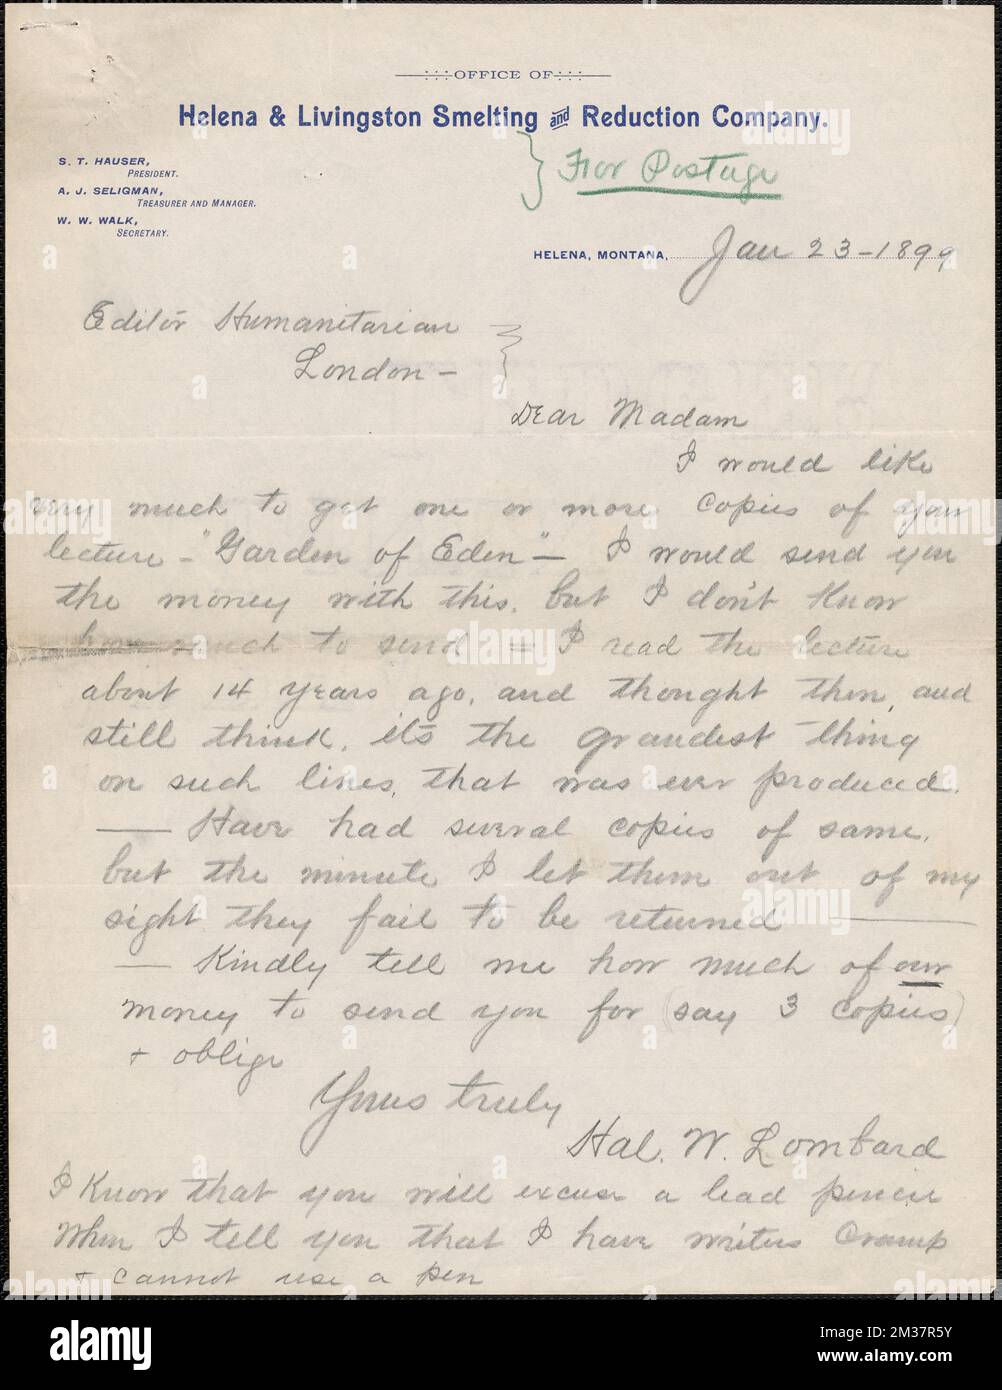 OFFICE OF
Helena & Livingston Smelting and Reduction Company.
For Postage
S. T. HAUSER,
PRESIDENT.
A. J. SELIGMAN,
TREASURER AND MANAGER.
W. W. WALK,
SECRETARY.
HELENA, MONTANA, Jan 23-1899
Editor Humanitarian
London -
Dear Madam
I would like
very much to get one or more copies of your
lecture - "Garden of Eden" - I would send you
the money with this, but I don't know
how much to send = I read the lecture
about 14 years ago, and thought then, and
still think, it's the grandest thing
on such lines, that was ever produced.
— Have had several copies of same,
but the minute I let them out of my
sight they fail to be returned —
— Kindly tell me how much of our
money to send you for (say 3 copies)
+ oblige
Yours truly
Hal. W. Lombard
I know that you will excuse a lead pencil
when I tell you that I have writers cramp
+ cannot use a pen
alamy
Image ID: 2M37R5Y
www.alamy.com